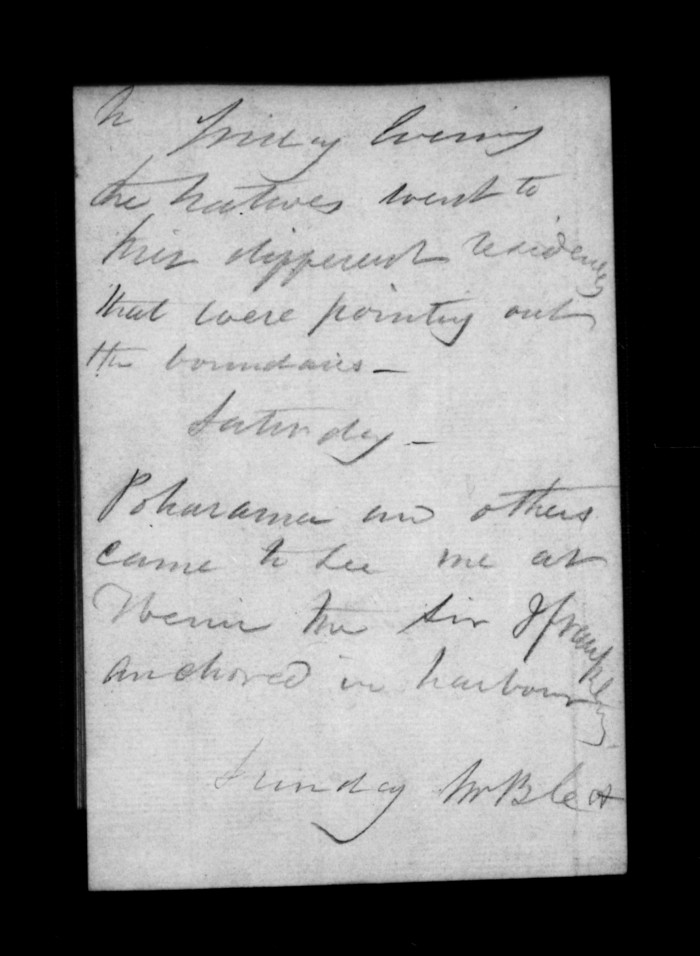 Friday Evening
the natives went to
their different residences
that were pointing out
the boundaries —
Saturday —
Poharama and others
came to see me at
the Sir J Franklin
anchored in harbour
Sunday Mr B left